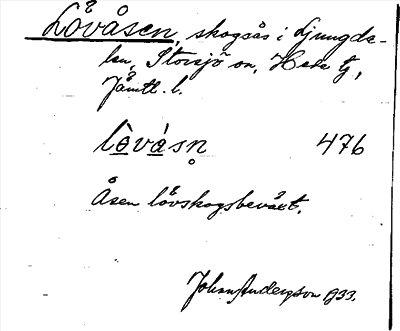 Lövåsen, skogsås i Ljungda-
len, Storsjö sn, Hede tg,
Jämtl. l.
lòvásn̥ 476
Åsen lövskogsbeväxt.
Johan Andersson 1933.